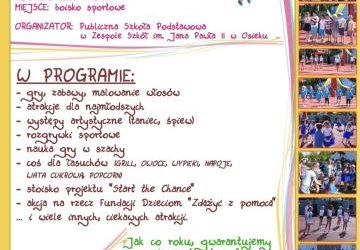 MIEJSCE: boisko sportowe
ORGANIZATOR: Publiczna Szkoła Podstawowa
w Zespole Szkół im. Jana Pawła II w Osieku
W PROGRAMIE:
- gry, zabawy, malowanie włosów
- atrakcje dla najmłodszych
- występy artystyczne (taniec, śpiew)
- rozgrywki sportowe
- nauka gry w szachy
- coś dla łasuchów (GRILL, OWOCE, WYPIEKI, NAPOJE,
WATA CUKROWA, POPCORN)
- stoisko projektu "Start the Chance"
- akcja na rzecz Fundacji Dzieciom "Zdążyć z pomocą"
... i wiele innych, ciekawych atrakcji.
Jak co roku, gwarantujemy